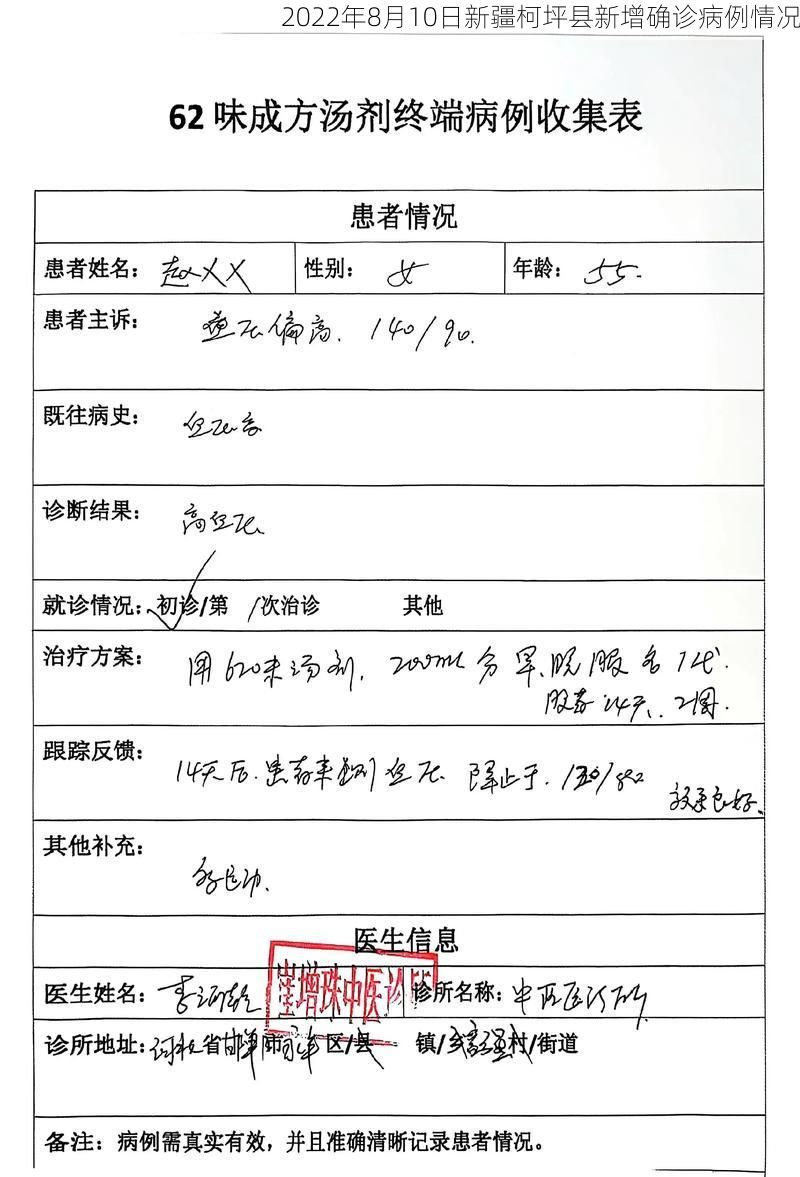 2022年8月10日新疆柯坪县新增确诊病例情况
62味成方汤剂终端病例收集表
患者情况
患者姓名： 赵XX 性别： 女 年龄： 55.
患者主诉： 血压偏高. 140/90.
既往病史： 血压高
诊断结果： 高血压
就诊情况：初诊/第 /次治诊 其他
治疗方案： 用62味汤剂. 200ml 分早、晚服各1代.
服药14天、2周.
跟踪反馈： 14天后.患者来测血压
效果良好.
其他补充：
医生信息
崔增珠中医诊所
医生姓名： 李 诊所名称：中医诊所
诊所地址： 省邯郸市 区/县 镇/乡 村/街道
备注：病例需真实有效，并且准确清晰记录患者情况。